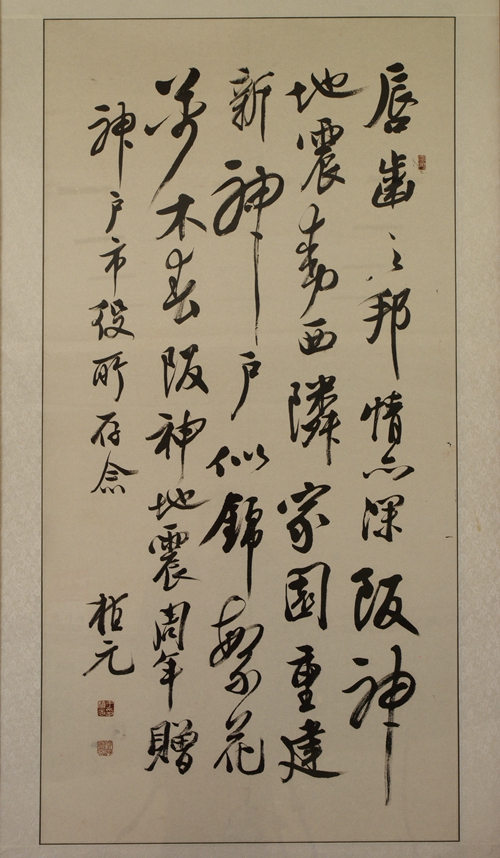 唇齒之邦情亦深阪神
地震動西隣家園重建
新神戸似錦繁花
萬木春阪神地震周年贈
神戸市役所存念
楷元